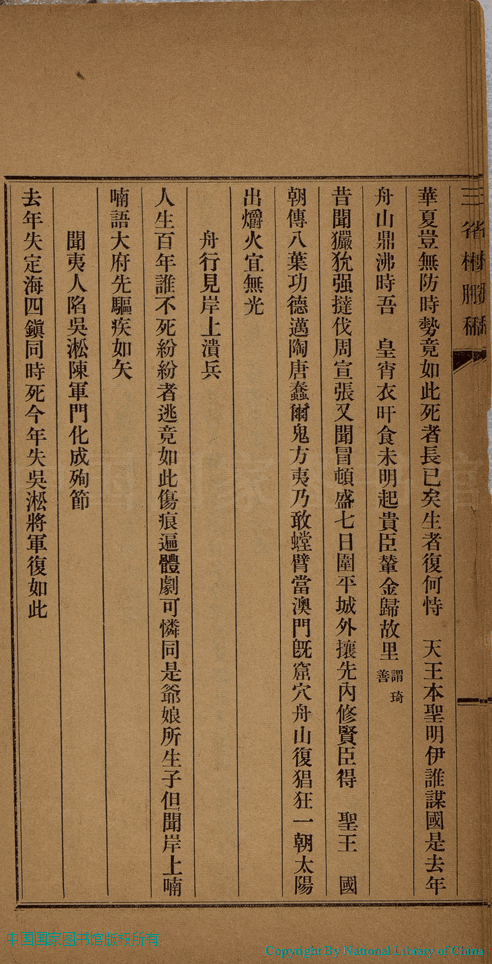 三省楼賸稿
華夏豈無防時勢竟如此死者長已矣生者復何恃　天王本聖明伊誰謀國是去年
舟山鼎沸時吾　皇宵衣旰食未明起貴臣輦金歸故里謂琦善
昔聞玁狁强撻伐周宣張又聞冒頓盛七日圍平城外攘先內修賢臣得　聖王　國
朝傳八葉功德邁陶唐蠢爾鬼方夷乃敢螳臂當澳門旣窟穴舟山復猖狂一朝太陽
出爝火宜無光
舟行見岸上潰兵
人生百年誰不死紛紛者逃竟如此傷痕遍體劇可憐同是爺娘所生子但聞岸上喃
喃語大府先驅疾如矢
聞夷人陷吳淞陳軍門化成殉節
去年失定海四鎭同時死今年失吳淞將軍復如此
中国国家图书馆版权所有
Copyright By National Library of China